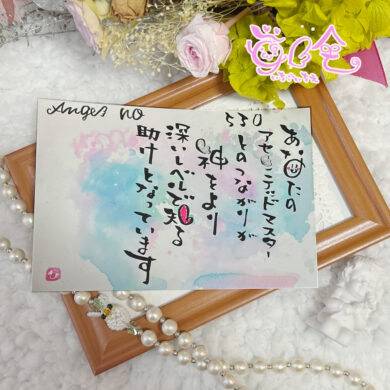 Anges no
530
あなたの
アセンデッドマスター
とのつながりが
神をより
深いレベルで知る
助けとなっています